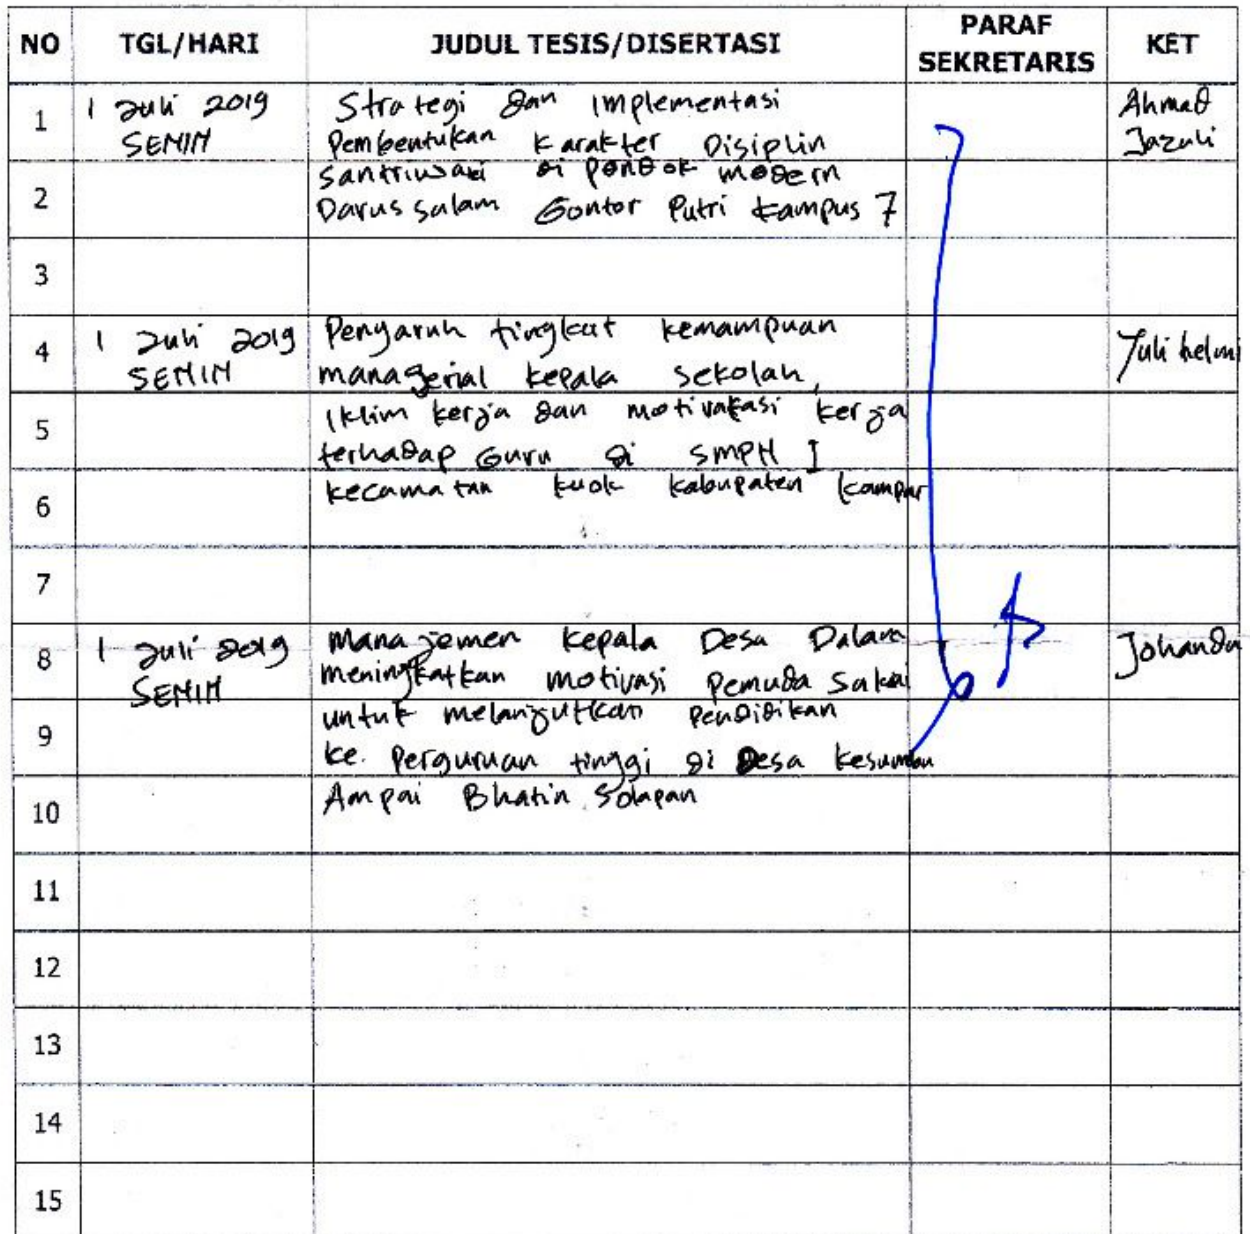 NO TGL/HARI JUDUL TESIS/DISERTASI PARAF SEKRETARIS KET
1 1 Juli 2019 Strategi dan Implementasi Ahmad
SENIN Pembentukan Karakter Disiplin Jazuli
santriwati di pondok modern
2 Darussalam Gontor Putri Kampus 7
3
4 1 Juli 2019 Pengaruh tingkat kemampuan Yuli helmi
SENIN managerial kepala sekolah,
5 Iklim kerja dan motivakasi kerja
terhadap Guru di SMPN I
6 kecamatan kuok kabupaten kampar
7
8 1 Juli 2019 Manajemen Kepala Desa Dalam Johanda
SENIN meningkatkan motivasi Pemuda Sakai
9 untuk melanjutkan pendidikan
ke Perguruan tinggi di Desa Kesumbu
10 Ampai Bhatin Solapan
11
12
13
14
15